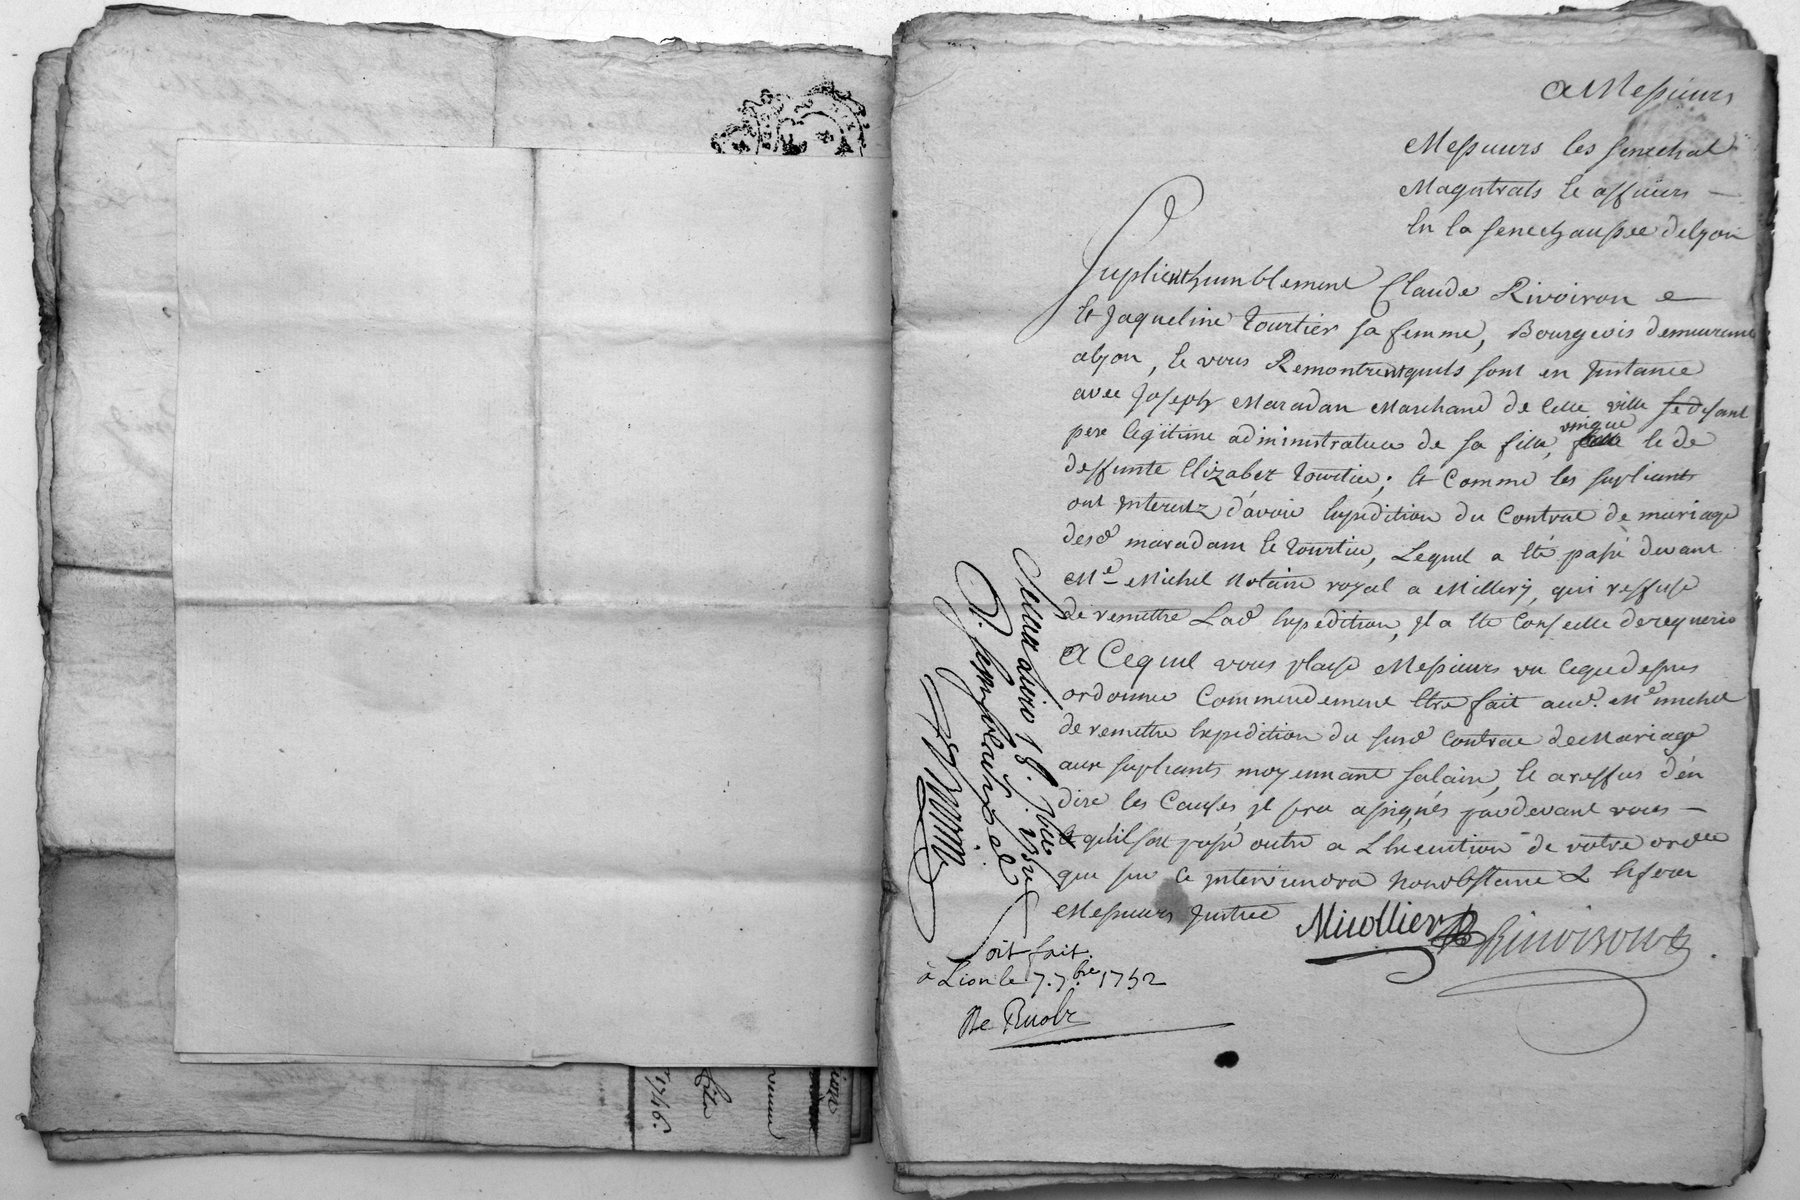 A Messieurs
Messieurs les senechal
Magistrats et officiers
En la senechaussee de lyon
Suplient humblement Claude Rivoiron e
Et Jaqueline Tourtier sa femme, Bourgeois demeurant
a lyon, et vous Remontrent quils sont en Instance
avec Joseph Maradan Marchand de cette ville se disant
pere legitime administrateur de sa fille, unique et de
deffunte Elizabet Tourtier; et Comme les suplients
ont Interestz d'avoir Expedition du Contrat de mariage
desd maradam et tourtier, Lequel a eté passé devant
Me Michel Notaire royal a Millery, qui reffuse
de remettre Lad Expedition, Il a eté Conseillé de requerir
A Cequil vous plaise Messieurs vu ceque dessus
ordonner Commendement Etre fait aud. Me michel
de remettre Expedition du susd Contrat de Mariage
aux supliants moyennant salaire, et a reffus d'en
dire les Causes, il sera assignés pardevant vous
Et qu'il soit passé outre a L'Execution de votre ordce
que sur ce Interviendra nonobstant & Et ferez
Messieurs Justice
Micollier Rivoiron
Soit fait.
à Lion le 7. 7bre 1752
1746.